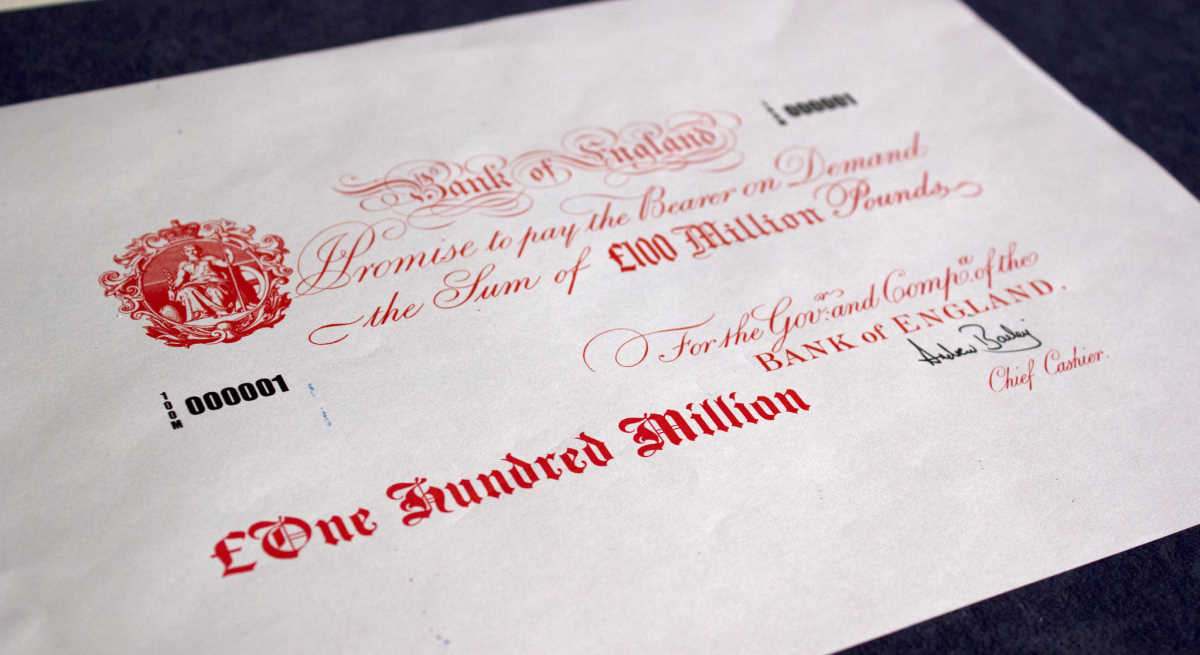 Bank of England
000001
I Promise to pay the Bearer on Demand
the Sum of £100 Million Pounds
For the Govr. and Compa. of the
BANK of ENGLAND.
Andrew Bailey
Chief Cashier.
100M 000001
£One Hundred Million